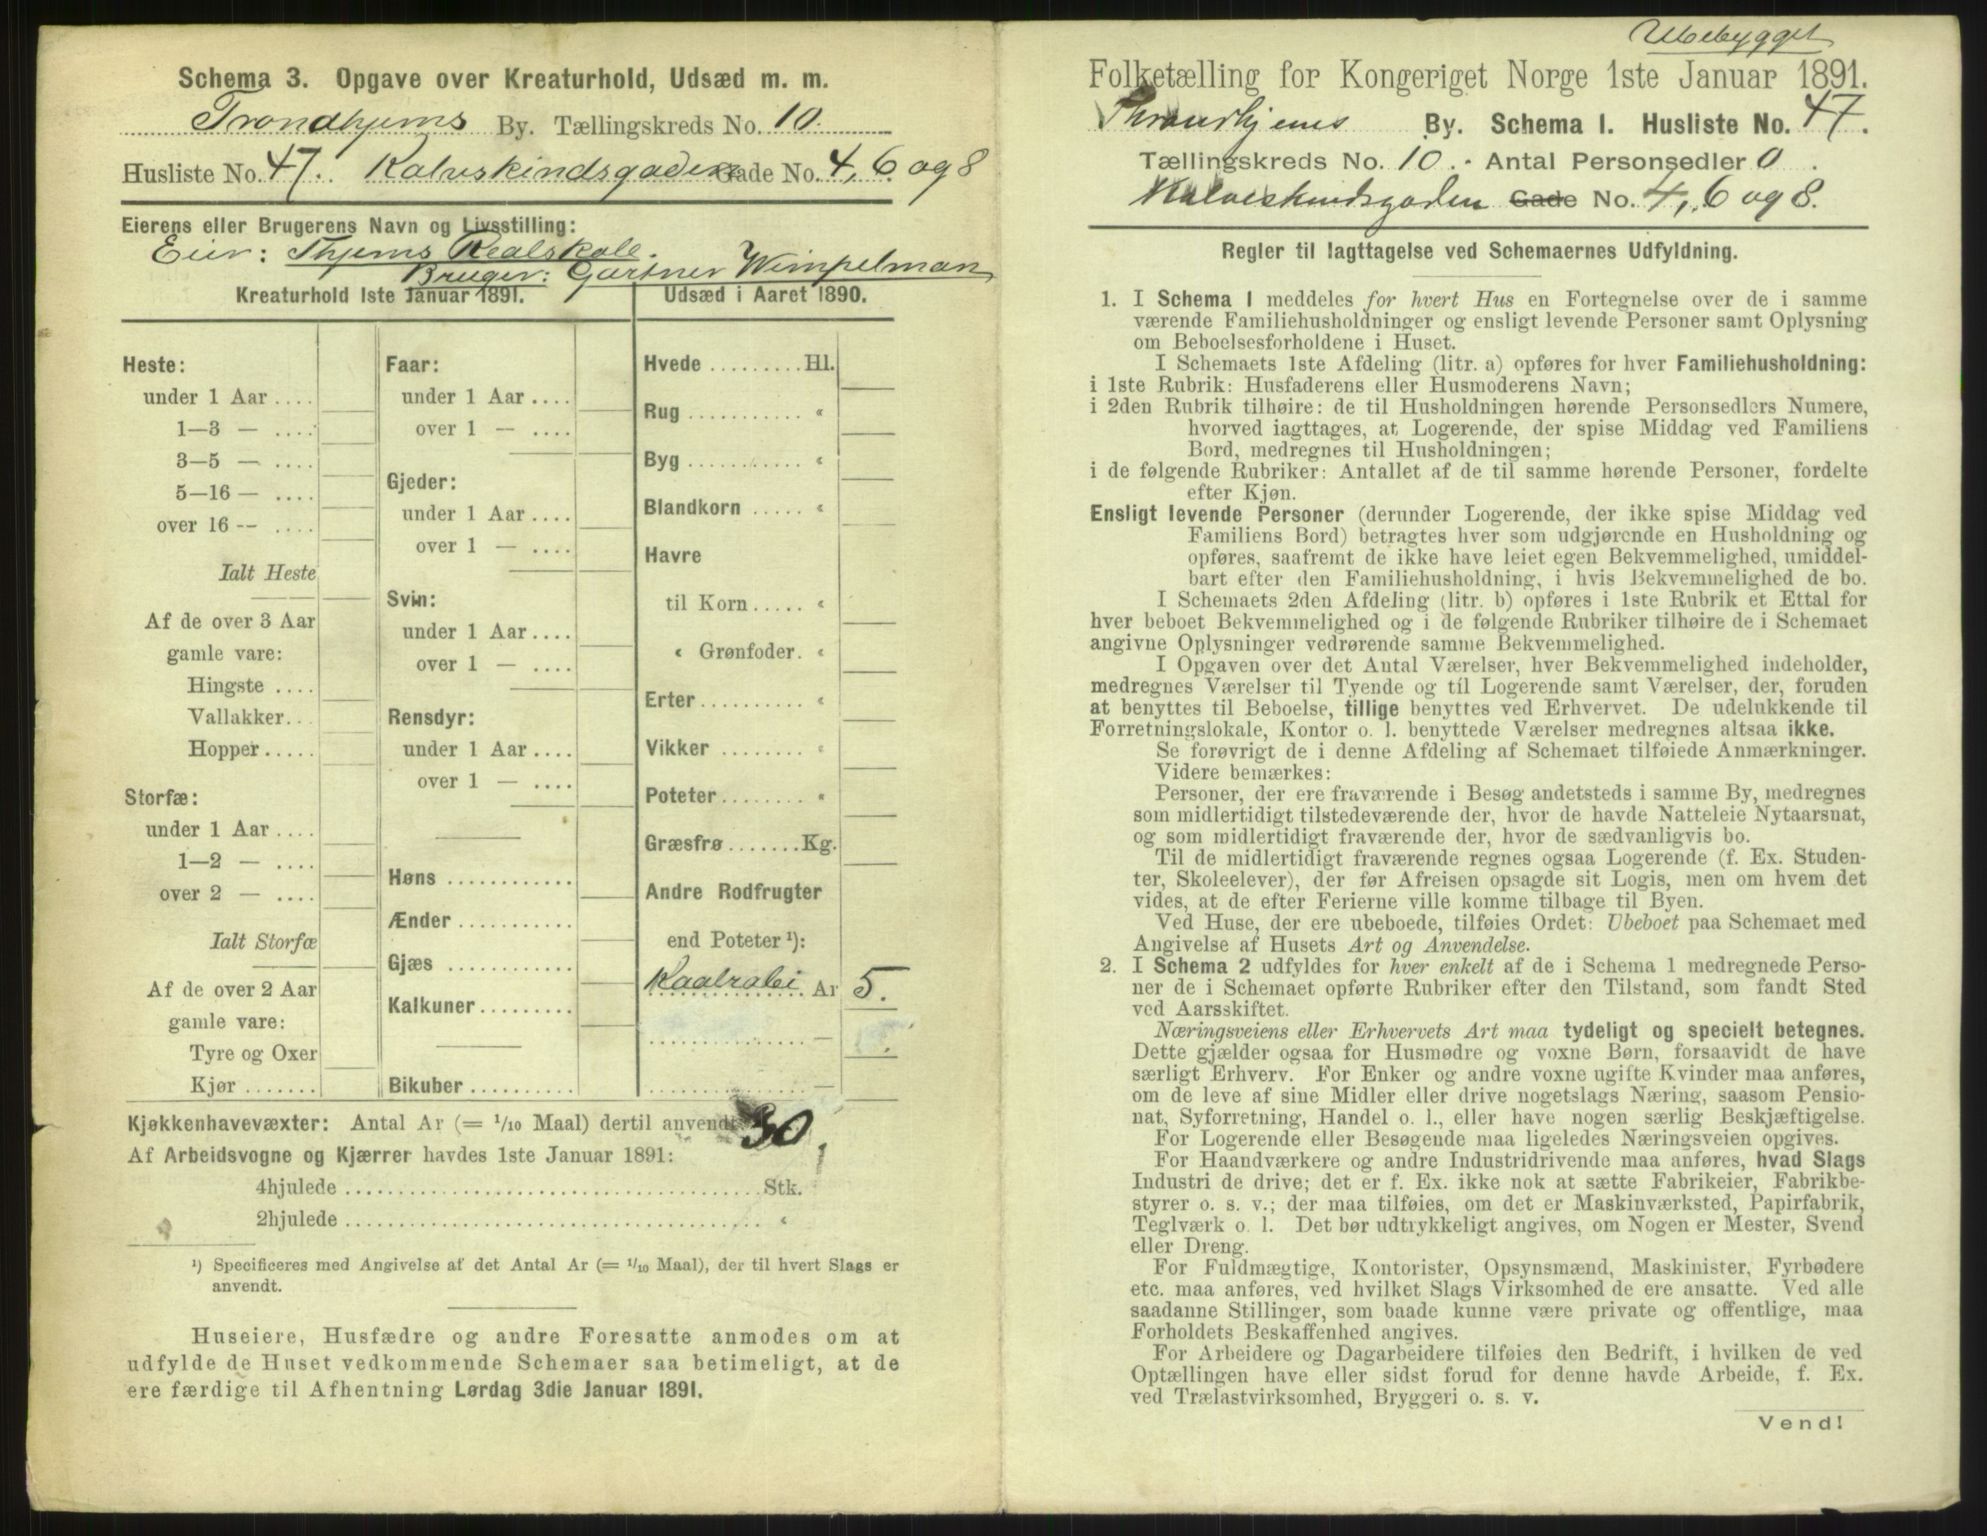 Schema 3. Opgave over Kreaturhold, Udsæd m. m.
Trondhjems By. Tællingskreds No. 10
Husliste No. 47. Kalveskindsgaden Gade No. 4, 6 og 8
Eierens eller Brugerens Navn og Livsstilling:
Eier: Thjems Realskole.
Bruger: Gartner Wimpelman
Kreaturhold 1ste Januar 1891.
Heste:
under 1 Aar ....
1—3 — ....
3—5 — ....
5—16 — ....
over 16 -- ....
Ialt Heste
Af de over 3 Aar
gamle vare:
Hingste ....
Vallakker...
Hopper.....
Storfæ:
under 1 Aar ....
1—2 — ....
over 2 — ....
Ialt Storfæ
Af de over 2 Aar
gamle vare:
Tyre og Oxer
Kjør .......
Faar:
under 1 Aar ....
over 1 — ....
Gjeder:
under 1 Aar ....
over 1 — ....
Svin:
under 1 Aar ....
over 1 — ....
Rensdyr:
under 1 Aar ....
over 1 — ....
Høns ............
Ænder ...........
Gjæs ............
Kalkuner.........
Bikuber ..........
Udsæd i Aaret 1890.
Hvede .........Hl.
Rug ........... «
Byg ........... «
Blandkorn ..... «
Havre
til Korn ..... «
« Grønfoder. «
Erter.......... «
Vikker ........ «
Poteter........ «
Græsfrø .......Kg.
Andre Rodfrugter
end Poteter ¹):
Kaalrabi Ar 5.
............... —
............... —
Kjøkkenhavevæxter: Antal Ar (= 1/10 Maal) dertil anvendt 30
Af Arbeidsvogne og Kjærrer havdes 1ste Januar 1891:
4hjulede ........................................Stk.
2hjulede ........................................ «
¹) Specificeres med Angivelse af det Antal Ar (= 1/10 Maal), der til hvert Slags er
anvendt.
Huseiere, Husfædre og andre Foresatte anmodes om at
udfylde de Huset vedkommende Schemaer saa betimeligt, at de
ere færdige til Afhentning Lørdag 3die Januar 1891.
Ubebygget
Folketælling for Kongeriget Norge 1ste Januar 1891.
Throndhjems By. Schema 1. Husliste No. 47.
Tællingskreds No. 10. - Antal Personsedler 0.
Kalveskindsgaden Gade No. 4, 6 og 8.
Regler til Iagttagelse ved Schemaernes Udfyldning.
1. I Schema 1 meddeles for hvert Hus en Fortegnelse over de i samme
værende Familiehusholdninger og ensligt levende Personer samt Oplysning
om Beboelsesforholdene i Huset.
I Schemaets 1ste Afdeling (litr. a) opføres for hver Familiehusholdning:
i 1ste Rubrik: Husfaderens eller Husmoderens Navn;
i 2den Rubrik tilhøire: de til Husholdningen hørende Personsedlers Numere,
hvorved iagttages, at Logerende, der spise Middag ved Familiens
Bord, medregnes til Husholdningen;
i de følgende Rubriker: Antallet af de til samme hørende Personer, fordelte
efter Kjøn.
Ensligt levende Personer (derunder Logerende, der ikke spise Middag ved
Familiens Bord) betragtes hver som udgjørende en Husholdning og
opføres, saafremt de ikke have leiet egen Bekvemmelighed, umiddel-
bart efter den Familiehusholdning, i hvis Bekvemmelighed de bo.
I Schemaets 2den Afdeling (litr. b) opføres i 1ste Rubrik et Ettal for
hver beboet Bekvemmelighed og i de følgende Rubriker tilhøire de i Schemaet
angivne Oplysninger vedrørende samme Bekvemmelighed.
I Opgaven over det Antal Værelser, hver Bekvemmelighed indeholder,
medregnes Værelser til Tyende og til Logerende samt Værelser, der, foruden
at benyttes til Beboelse, tillige benyttes ved Erhvervet. De udelukkende til
Forretningslokale, Kontor o. l. benyttede Værelser medregnes altsaa ikke.
Se forøvrigt de i denne Afdeling af Schemaet tilføiede Anmærkninger.
Videre bemærkes:
Personer, der ere fraværende i Besøg andetsteds i samme By, medregnes
som midlertidigt tilstedeværende der, hvor de havde Natteleie Nytaarsnat,
og som midlertidigt fraværende der, hvor de sædvanligvis bo.
Til de midlertidigt fraværende regnes ogsaa Logerende (f. Ex. Studen-
ter, Skoleelever), der før Afreisen opsagde sit Logis, men om hvem det
vides, at de efter Ferierne ville komme tilbage til Byen.
Ved Huse, der ere ubeboede, tilføies Ordet: Ubeboet paa Schemaet med
Angivelse af Husets Art og Anvendelse.
2. I Schema 2 udfyldes for hver enkelt af de i Schema 1 medregnede Perso-
ner de i Schemaet opførte Rubriker efter den Tilstand, som fandt Sted
ved Aarsskiftet.
Næringsveiens eller Erhvervets Art maa tydeligt og specielt betegnes.
Dette gjælder ogsaa for Husmødre og voxne Børn, forsaavidt de have
særligt Erhverv. For Enker og andre voxne ugifte Kvinder maa anføres,
om de leve af sine Midler eller drive nogetslags Næring, saasom Pensio-
nat, Syforretning, Handel o. l., eller have nogen særlig Beskjæftigelse.
For Logerende eller Besøgende maa ligeledes Næringsveien opgives.
For Haandværkere og andre Industridrivende maa anføres, hvad Slags
Industri de drive; det er f. Ex. ikke nok at sætte Fabrikeier, Fabrikbe-
styrer o. s. v.; der maa tilføies, om det er Maskinværksted, Papirfabrik,
Teglværk o. l. Det bør udtrykkeligt angives, om Nogen er Mester, Svend
eller Dreng.
For Fuldmægtige, Kontorister, Opsynsmænd, Maskinister, Fyrbødere
etc. maa anføres, ved hvilket Slags Virksomhed de ere ansatte. Ved alle
saadanne Stillinger, som baade kunne være private og offentlige, maa
Forholdets Beskaffenhed angives.
For Arbeidere og Dagarbeidere tilføies den Bedrift, i hvilken de ved
Optællingen have eller sidst forud for denne havde Arbeide, f. Ex.
ved Trælastvirksomhed, Bryggeri o. s. v.
Vend!